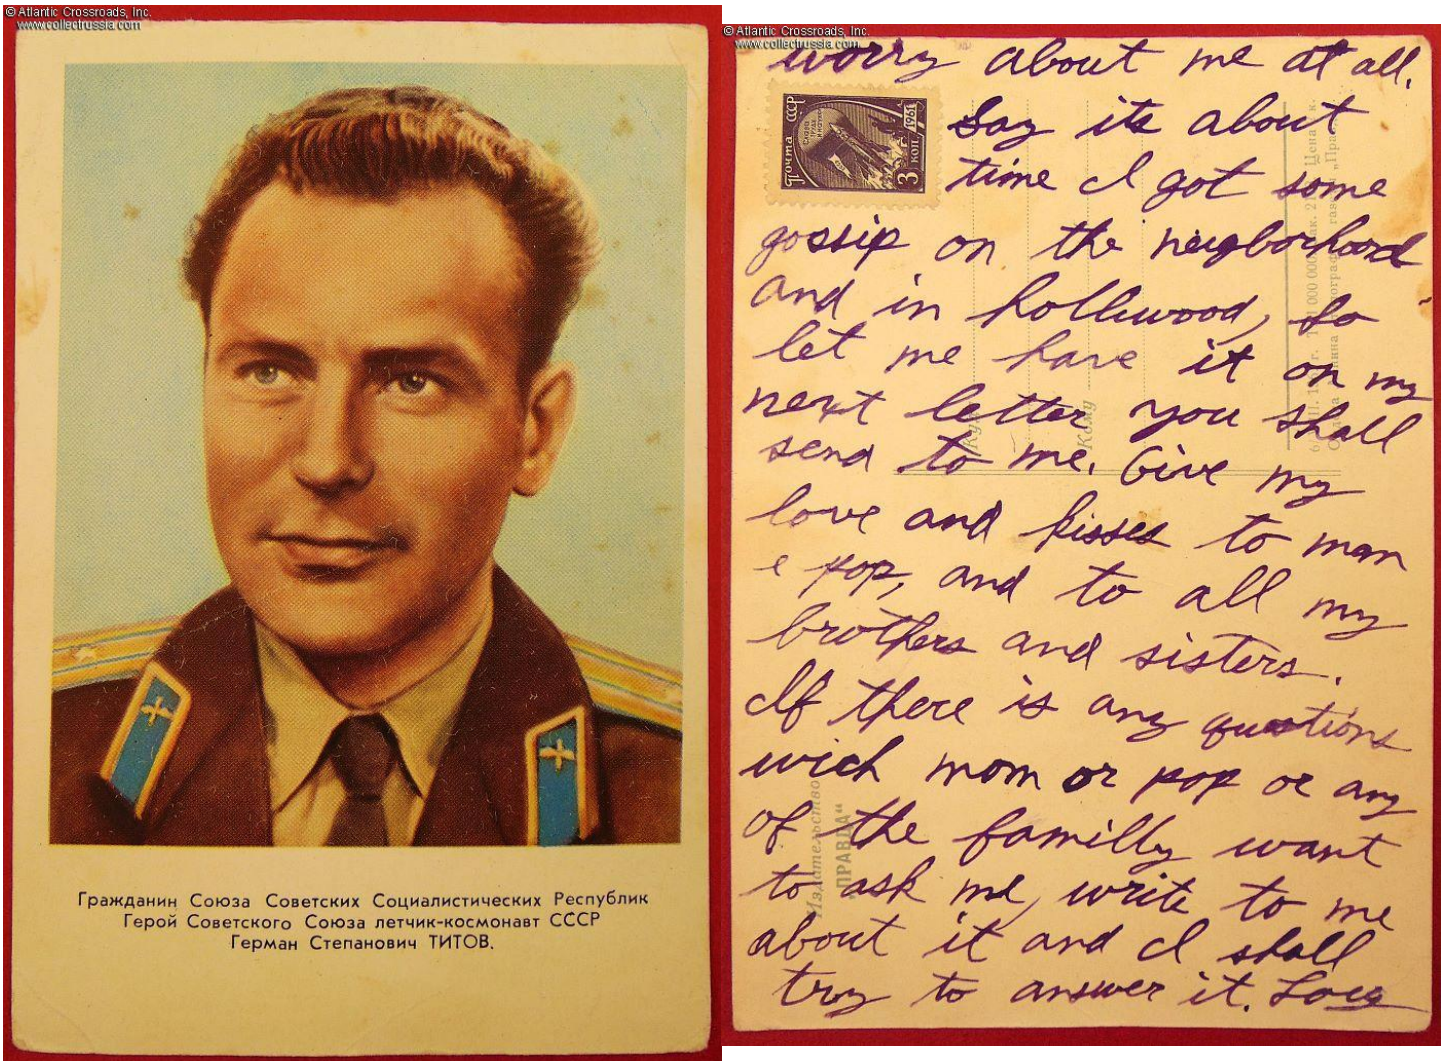 © Atlantic Crossroads, Inc.
www.collectrussia.com
Гражданин Союза Советских Социалистических Республик
Герой Советского Союза летчик-космонавт СССР
Герман Степанович ТИТОВ.
© Atlantic Crossroads, Inc.
www.collectrussia.com
worry about me at all.
Почта СССР
1961
3 коп
Say its about
time I got some
gossip on the neigborhood
and in holliwood, so
let me have it on my
next letter you shall
send to me. Give my
love and kisses to mam
e pop, and to all my
brothers and sisters.
If there is any questions
wich mom or pop or any
of the familly want
to ask me, write to me
about it and I shall
try to answer it.
Куда
Кому
Издательство
„ПРАВДА“